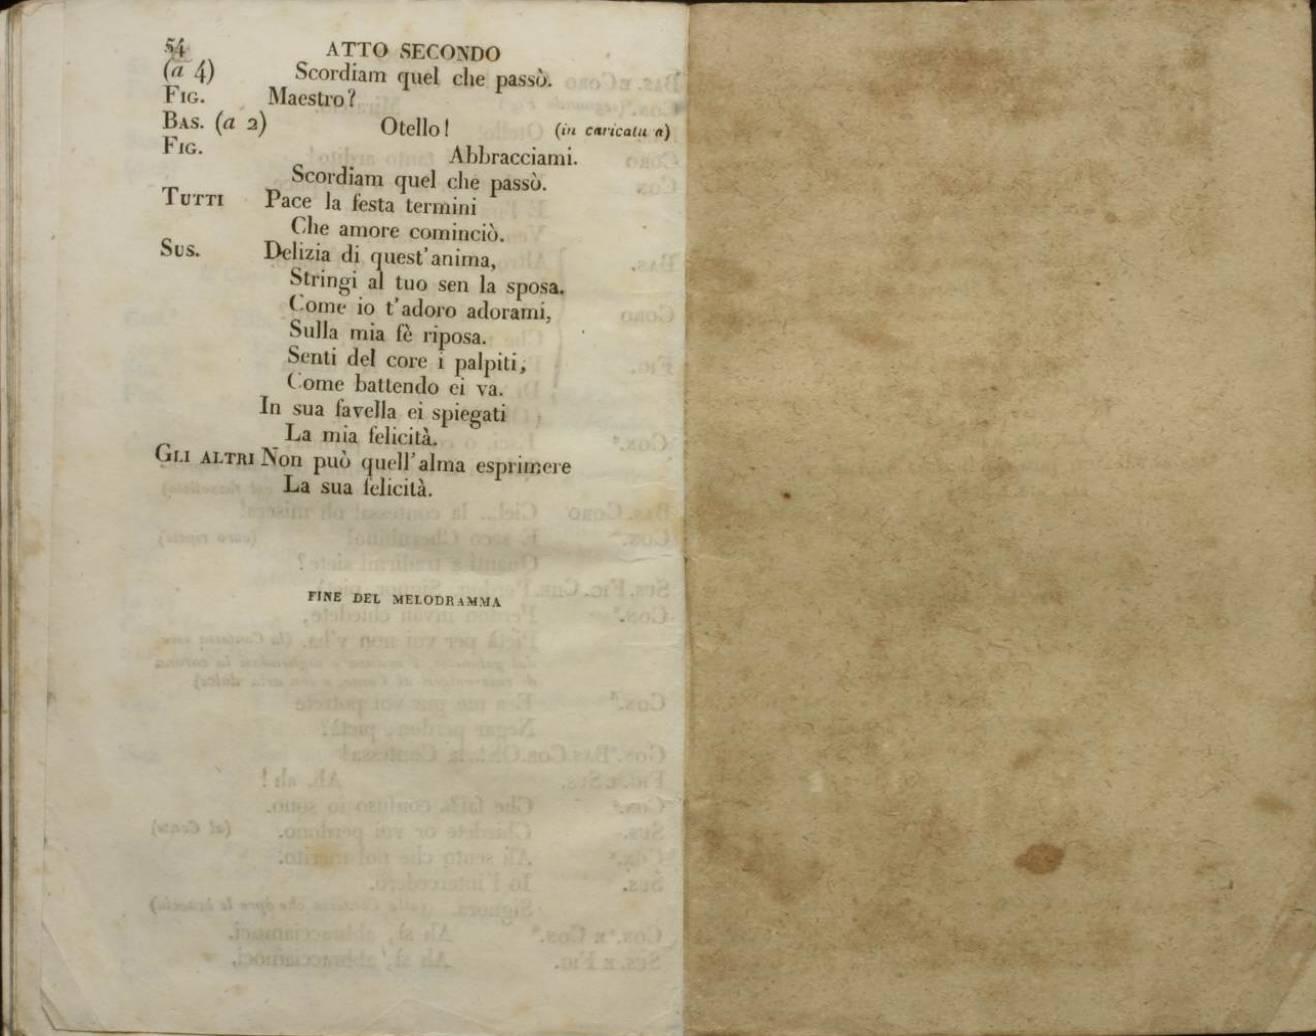 54 ATTO SECONDO
(a 4) Scordiam quel che passò.
FIG. Maestro?
BAS. (a 2) Otello! (in caricatu a)
FIG. Abbracciami.
Scordiam quel che passò.
TUTTI Pace la festa termini
Che amore cominciò.
SUS. Delizia di quest'anima,
Stringi al tuo sen la sposa.
Come io t'adoro adorami,
Sulla mia fè riposa.
Senti del core i palpiti,
Come battendo ei va.
In sua favella ei spiegati
La mia felicità.
GLI ALTRI Non può quell'alma esprimere
La sua felicità.
FINE DEL MELODRAMMA